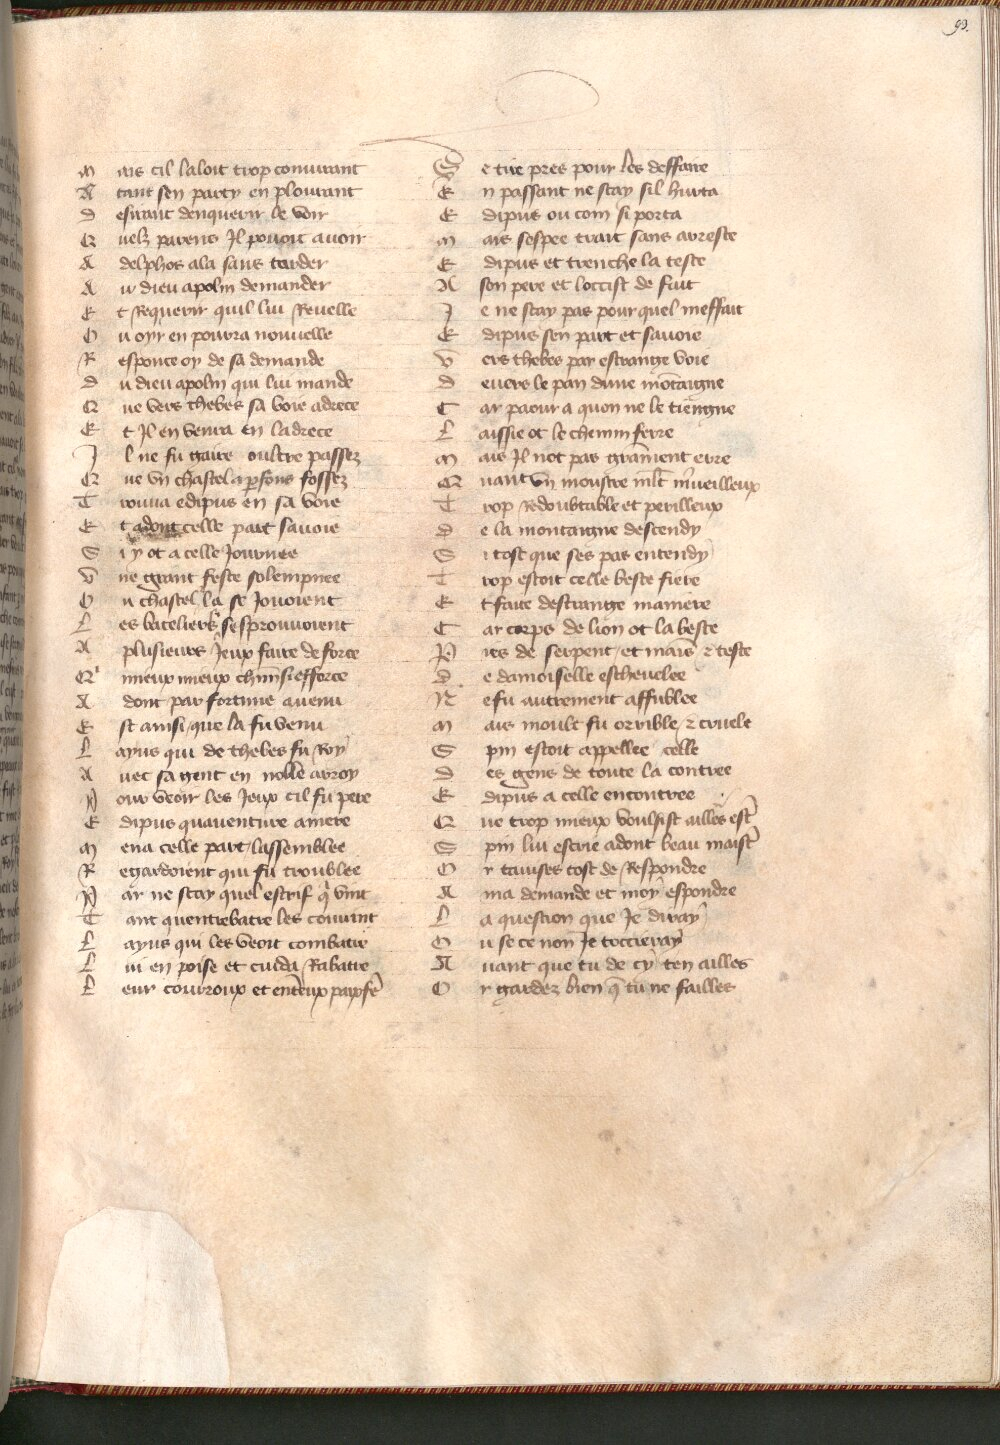 93.
Mais cil laloit trop couurant
Atant sen party en plourant
desirant denquerir le voir
Quelz parens Il pouoit auoir
A delphos ala sans tarder
Au dieu apolin demander
Et Requerir quil lui Reuelle
Ou oyr en pourra nouuelle
Responce oy de sa demande
du dieu apolin qui lui mande
Que vers thebes sa voie adrece
Et Il en venra en ladrece
Il ne fu gaire oultre passez
Que vn chastel a pfons fossez
Trouua edipus en sa voie
Et adont celle part sauoie
Si y ot a celle Journee
vne grant feste solempnee
Ou chastel la se Jouoient
Les bateliers sesprouuoient
A plusieurs Jeux faire de force
Qui mieux mieux chun sefforce
Adont par fortune auenu
Est ainsi que la fu venu
Layus qui de thebes fu Roy
Auec sa gent en noble arroy
Pour veoir les Jeux cil fu pere
Edipus quauenture amere
Mena celle part lassemblee
Regardoient qui fu troublee
Par ne scay quel estrif q vint
Tant quentrebatre les conuint
Layus qui les veoit combatre
Lui en poise et cuida Rabatre
Leur courroux et entreux
Se tire pres pour les deffaire
En passant ne scay sil hurta
Edipus ou com si porta
Mais sespee trait sans arreste
Edipus et trenche la teste
A son pere et loccist de fait
Je ne scay pas pour quel meffait
Edipus sen part et sauoie
Vers thebes par estrange voie
deuers le pan dune motaigne
Car paour a quon ne le tiengne
Laissie ot le chemin ferre
Mais Il not pas grament erre
Quant vn monstre mlt mueilleux
Trop Redoubtable et perilleux
de la montaigne descendy
Si tost que ses pas entendy
Trop estoit celle beste fiere
Et faite destrange maniere
Car corps de lion ot la beste
Pies de serpent et mais z teste
de damoiselle escheuelee
Ne fu autrement affublee
Mais moult fu orrible z cruele
Spin estoit appellee celle
des gens de toute la contree
Edipus a celle encontree
Que trop mieux voulsist ailles estre
Spin lui escrie adont beau maistre
Or tauises tost de Respondre
A ma demande et moy espondre
La question que Je diray
Ou se ce non Je tocciray
Auant que tu de cy ten ailles
Or gardez bien q tu ne failles